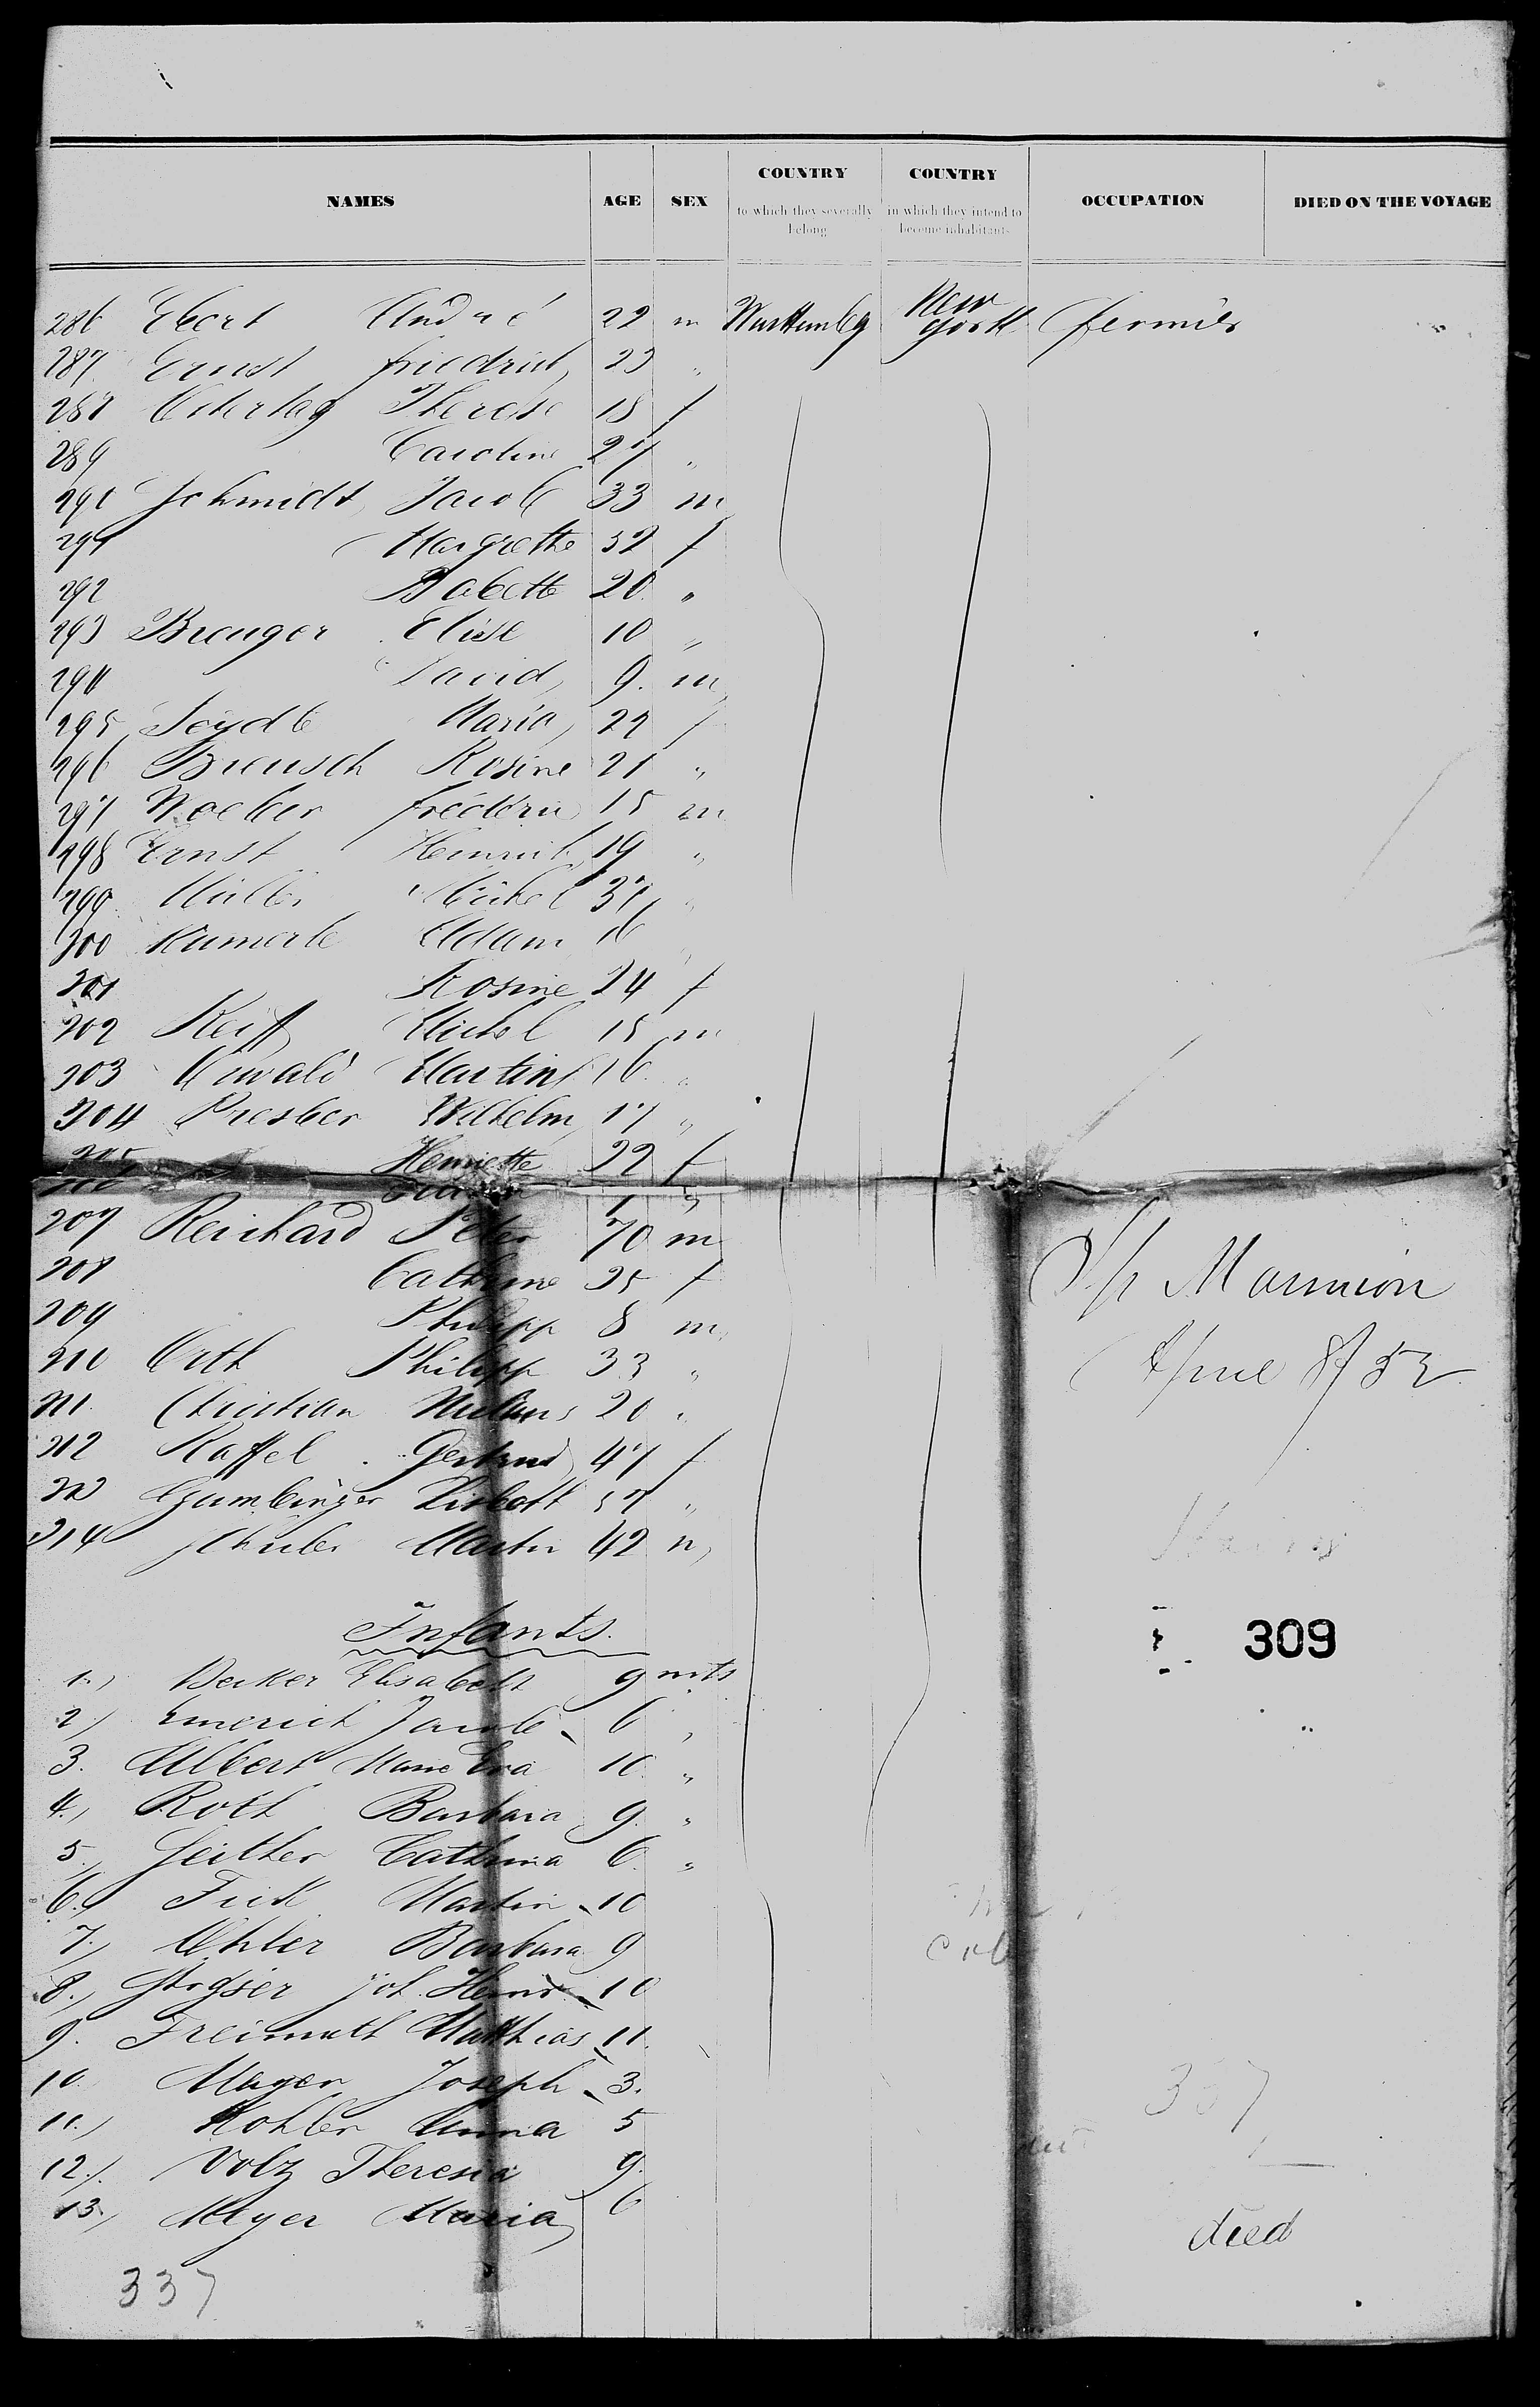 NAMES AGE SEX COUNTRY to which they severally belong COUNTRY in which they intend to become inhabitants OCCUPATION DIED ON THE VOYAGE
286 Ebert André 22 m New York fermier
287 Ernst Friedrich 23 "
288 Therese 18 f
289 Caroline 27 "
290 Schmidt Jacob 33 m
291 Margrethe 32 f
292 Babette 20 "
293 Elise 10 "
294 David 9. m
295 Maria 22 f
296 Breusch Rosine 21 "
297 15 m
298 Ernst Heinrich 19 "
299 Müller Michel 37 "
300 Kumerle Adam 16 "
301 Rosine 24 f
302 Reiff Michel 15 m
303 Martin 16. "
304 Presber Wilhelm 17 "
305 Henriette 22 f
1 "
307 Reichard Peter 70 m
308 Cathrine 25 f
309 Philipp 8 m
310 Orth Philipp 33 "
311 Christian 20 "
312 Raffel Gertrud 47 f
Gumbinger "
314 Martin 42 m
S/p Marmion
April 8/52
309
Infants.
1.) Becker Elisabeth 9 mts
2.) Emerich Jacob 6 "
3. Albert Marie Eva 10 "
4.) Roth Barbara 9. "
5.) Geither Cathrina 6. "
6.) Martin 10
7.) Ohler Barbara 9
8.) Joh. 10
9. Freimuth Matthias 11.
10. Mayer Joseph 3.
11.) Kohler Anna 5
12.) Volz Theresia 9.
13.) Meyer Maria 6
337
died